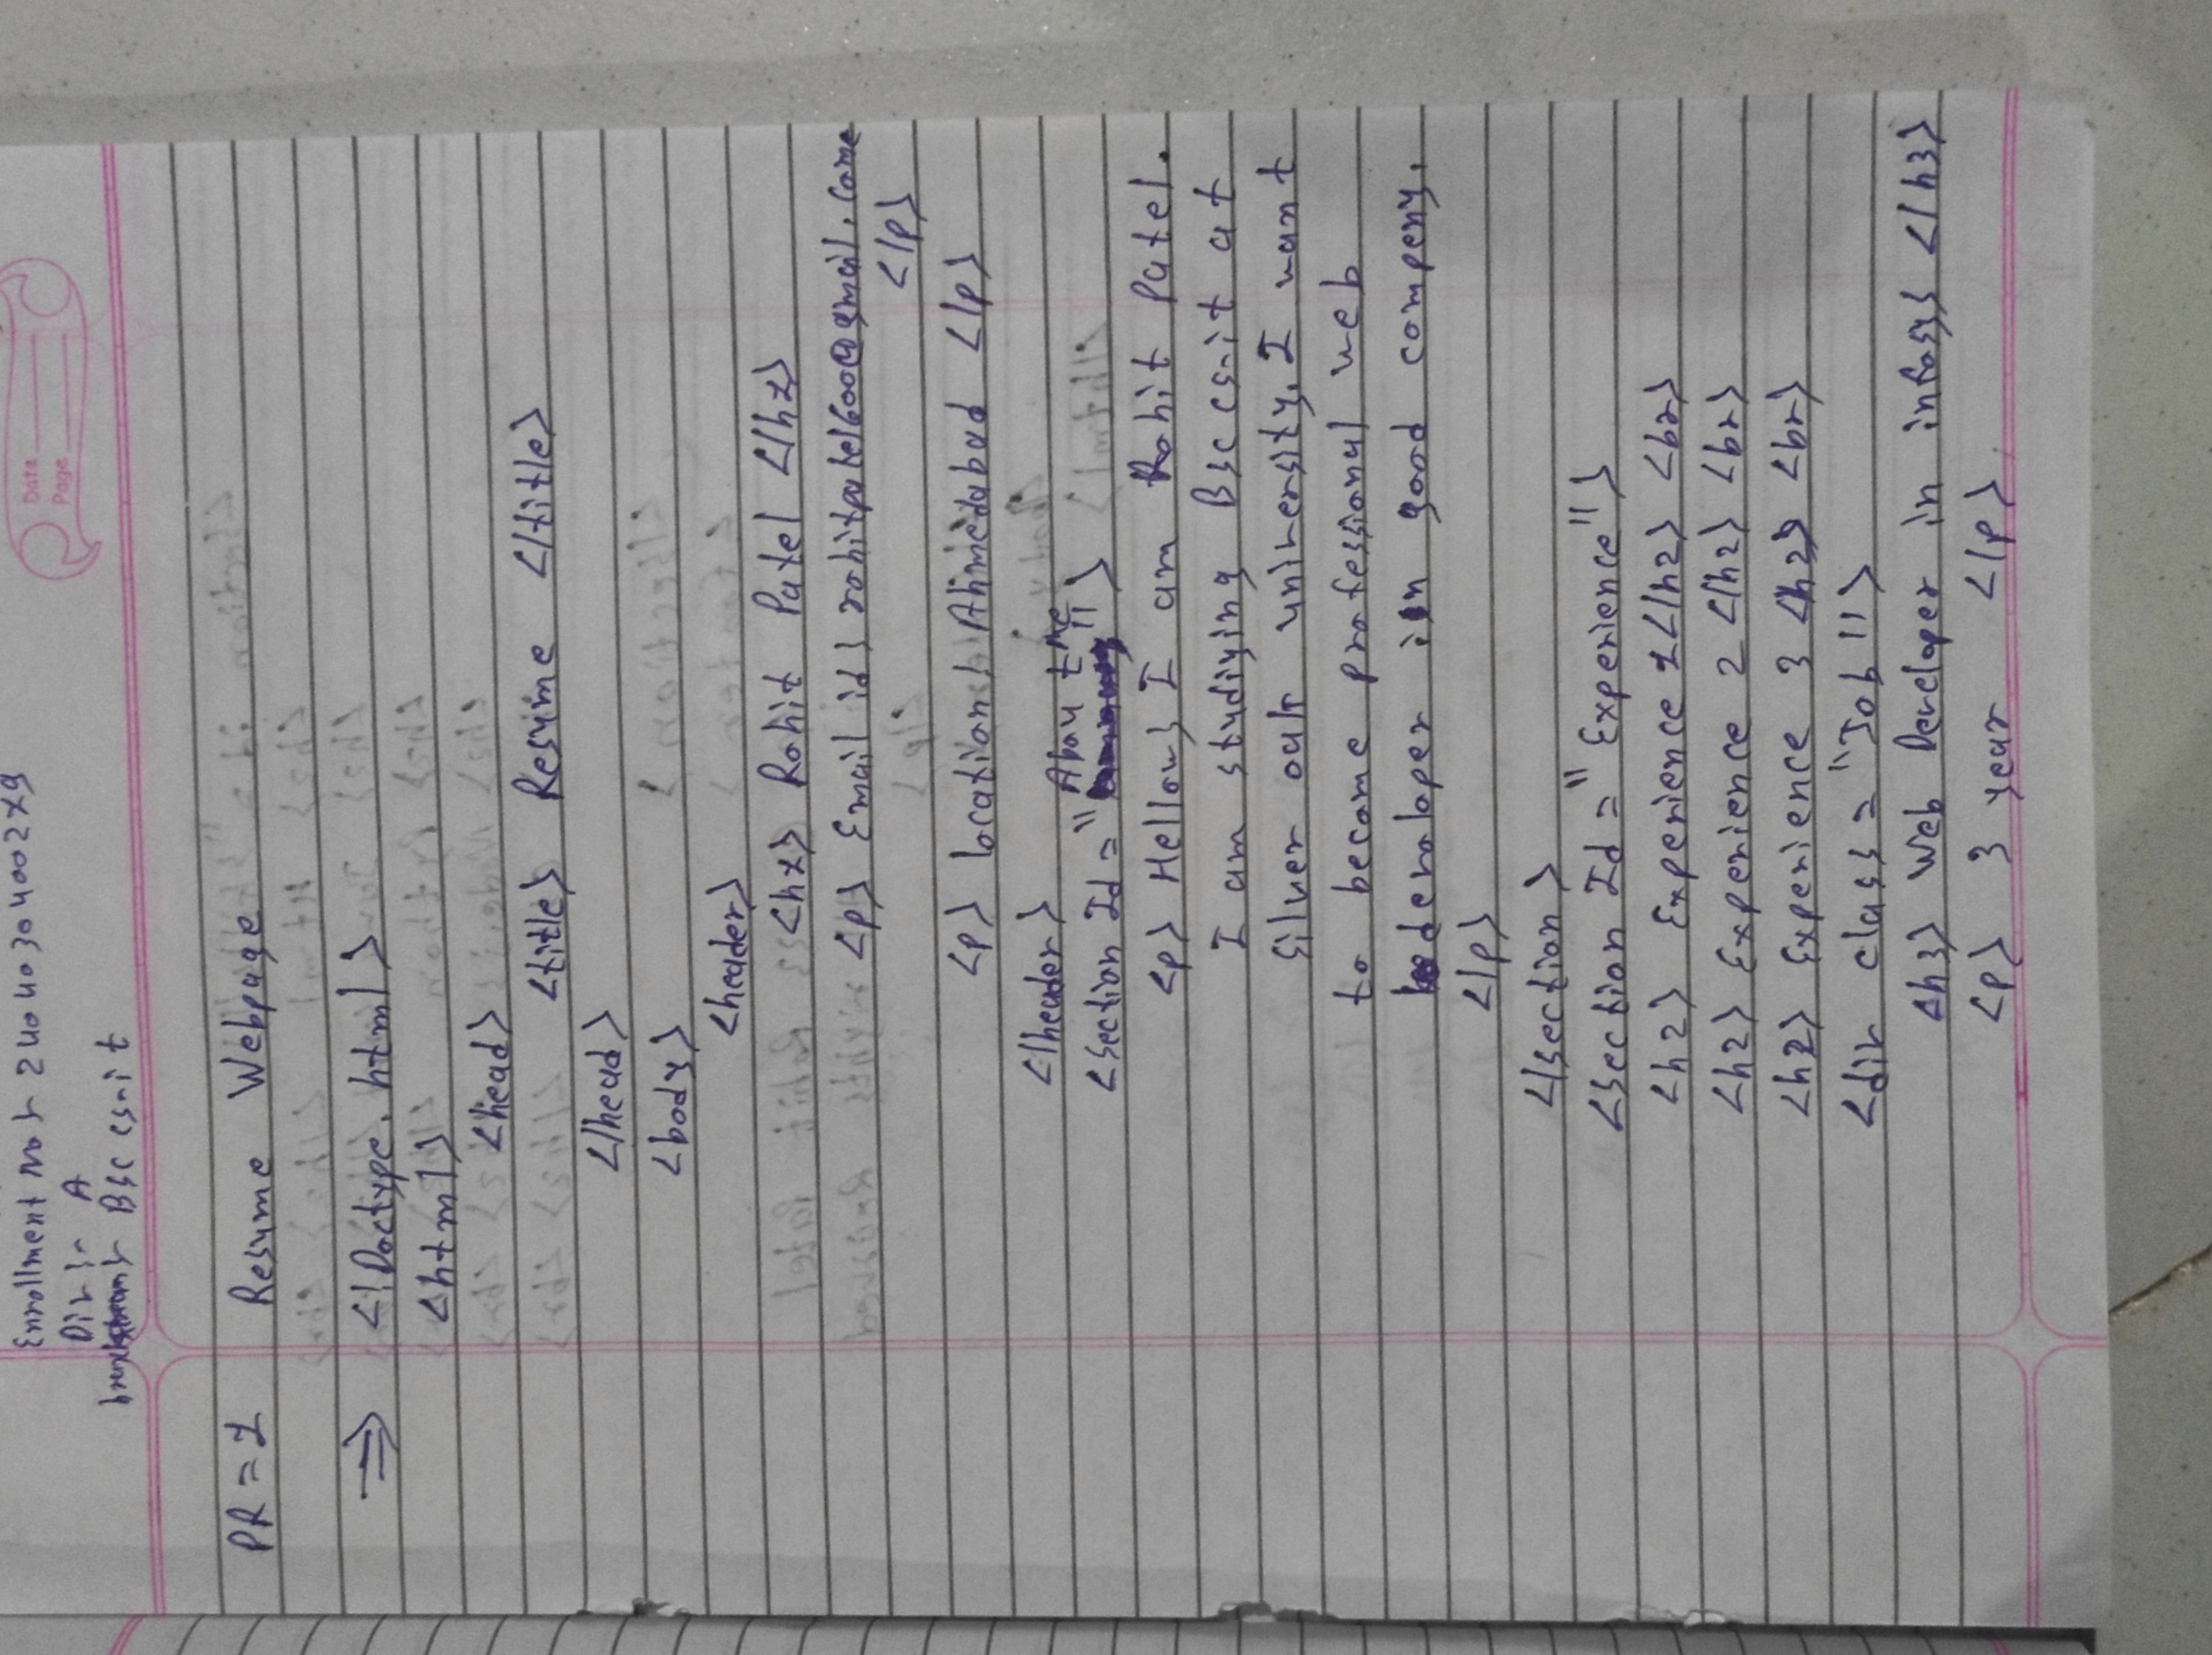 Enrollment No :- 2404030400279
Div :- A
Bsc cs-it
Date
Page
PR = 1 Resume Webpage
⇒ <!Doctype. html>
<html>
<head>
<title> Resume </title>
</head>
<body>
<header>
<h1> Rohit Patel </h1>
<p> Email id : rohitpatel600@gmail.come
</p>
<p> location : Ahmedabad </p>
</header>
<section Id = "About me">
<p> Hellow, I am Rohit Patel.
I am studiying Bsc cs-it at
Silver oak university. I want
to become professional web
devaloper in good compeny.
</p>
</section>
<section Id = "Experience">
<h2> Experience 1</h2> <br>
<h2> Experience 2 </h2> <br>
<h2> Experience 3 </h2> <br>
<div class = "Job">
<h3> Web Developer in infosys </h3>
<p> 3 year </p>